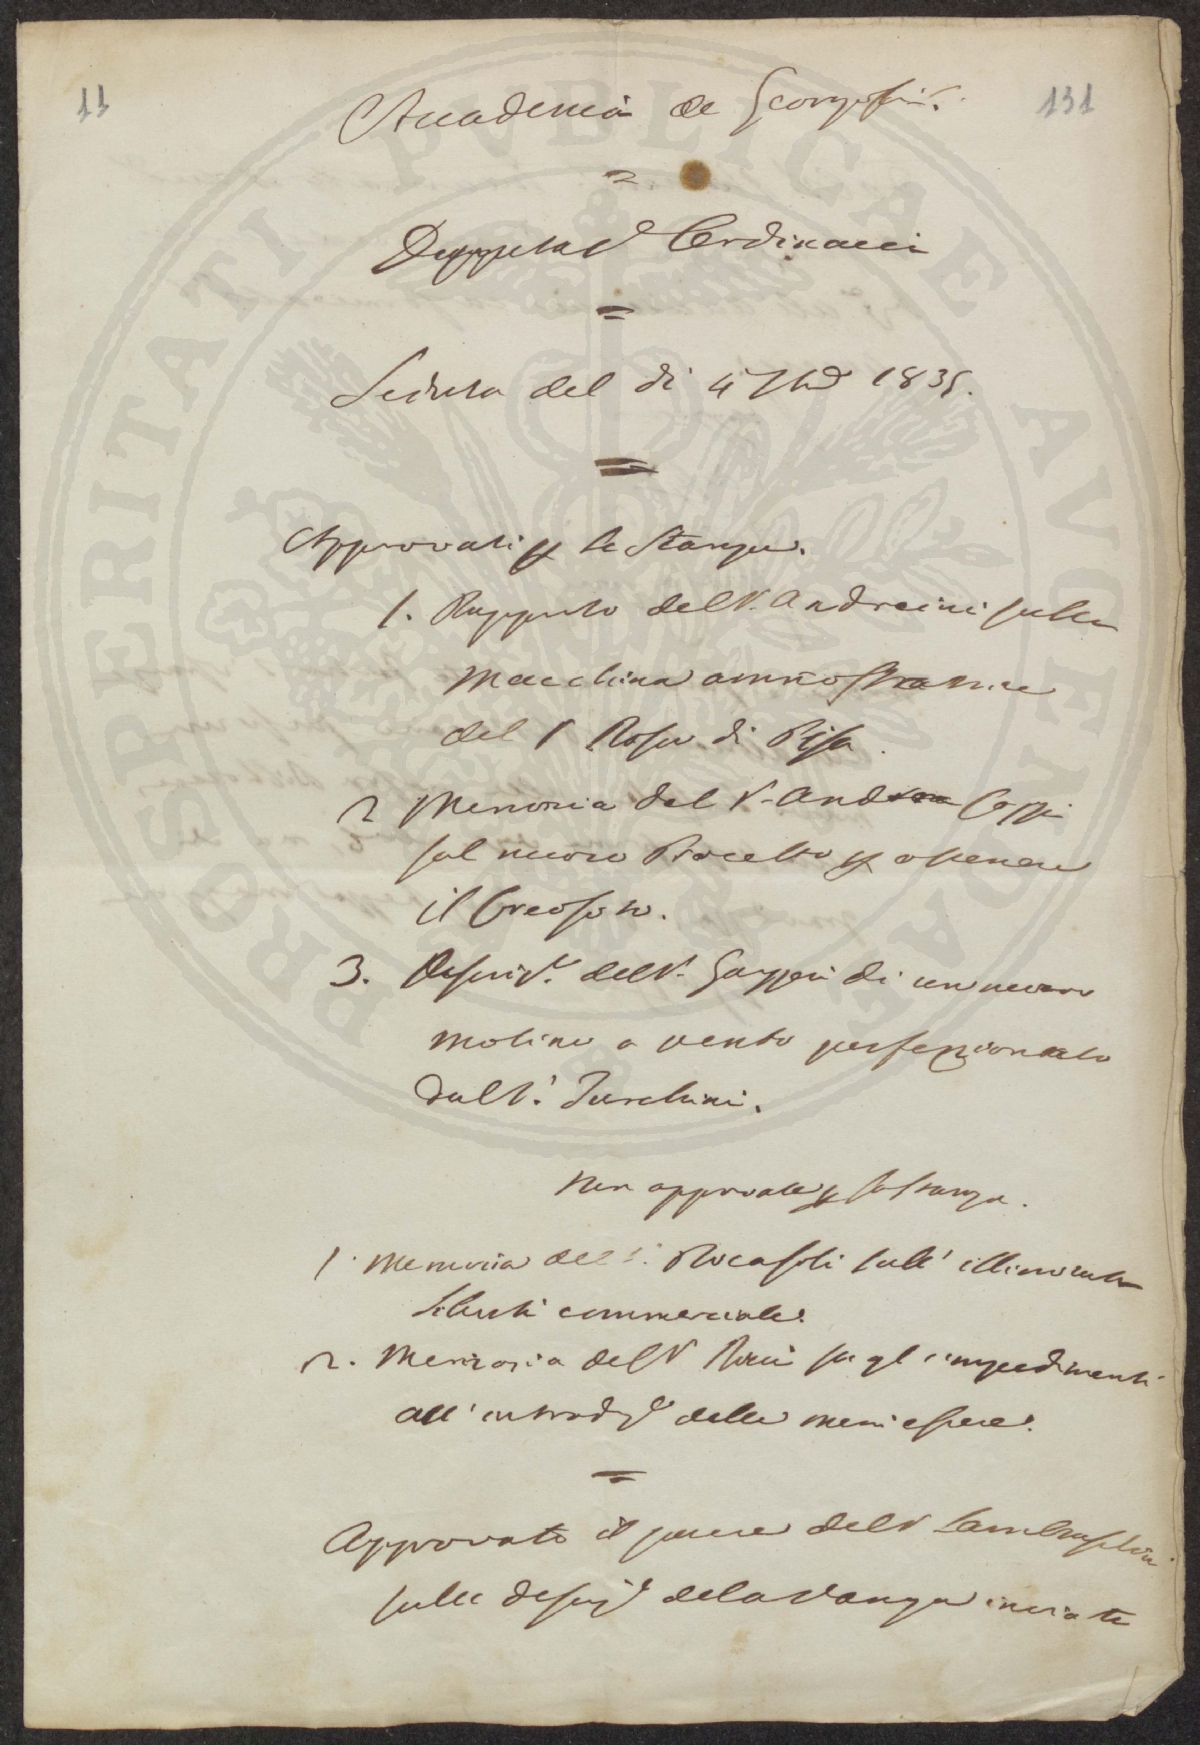 11
131
Accademia de Georgofili.
Deputaz.e Ordinaria
Seduta del di 4 7bre 1835.
Approvati p la Stampa.
1. Rapporto del S. Andreini sulla
Macchina ammostatrice
del S Rosa di Pisa.
2 Memoria del S. And Coppi
sul nuovo Processo p ottenere
il Creosoto.
3. Descriz.e del S. Gazzeri di un nuovo
molino a vento perfezionato
dal S. Turchini.
Non approvate p la stampa.
1. Memoria del S. Ricasoli sull' illimitata
libertà commerciale.
2. Memoria del S Ricci su gl' impedimenti
all' introduz.e delle mani estere.
Approvato il parere del S Lambruschini
sulla descriz.e della Vanga inviata
PROSPERITATI PVBLICAE AVGENDAE